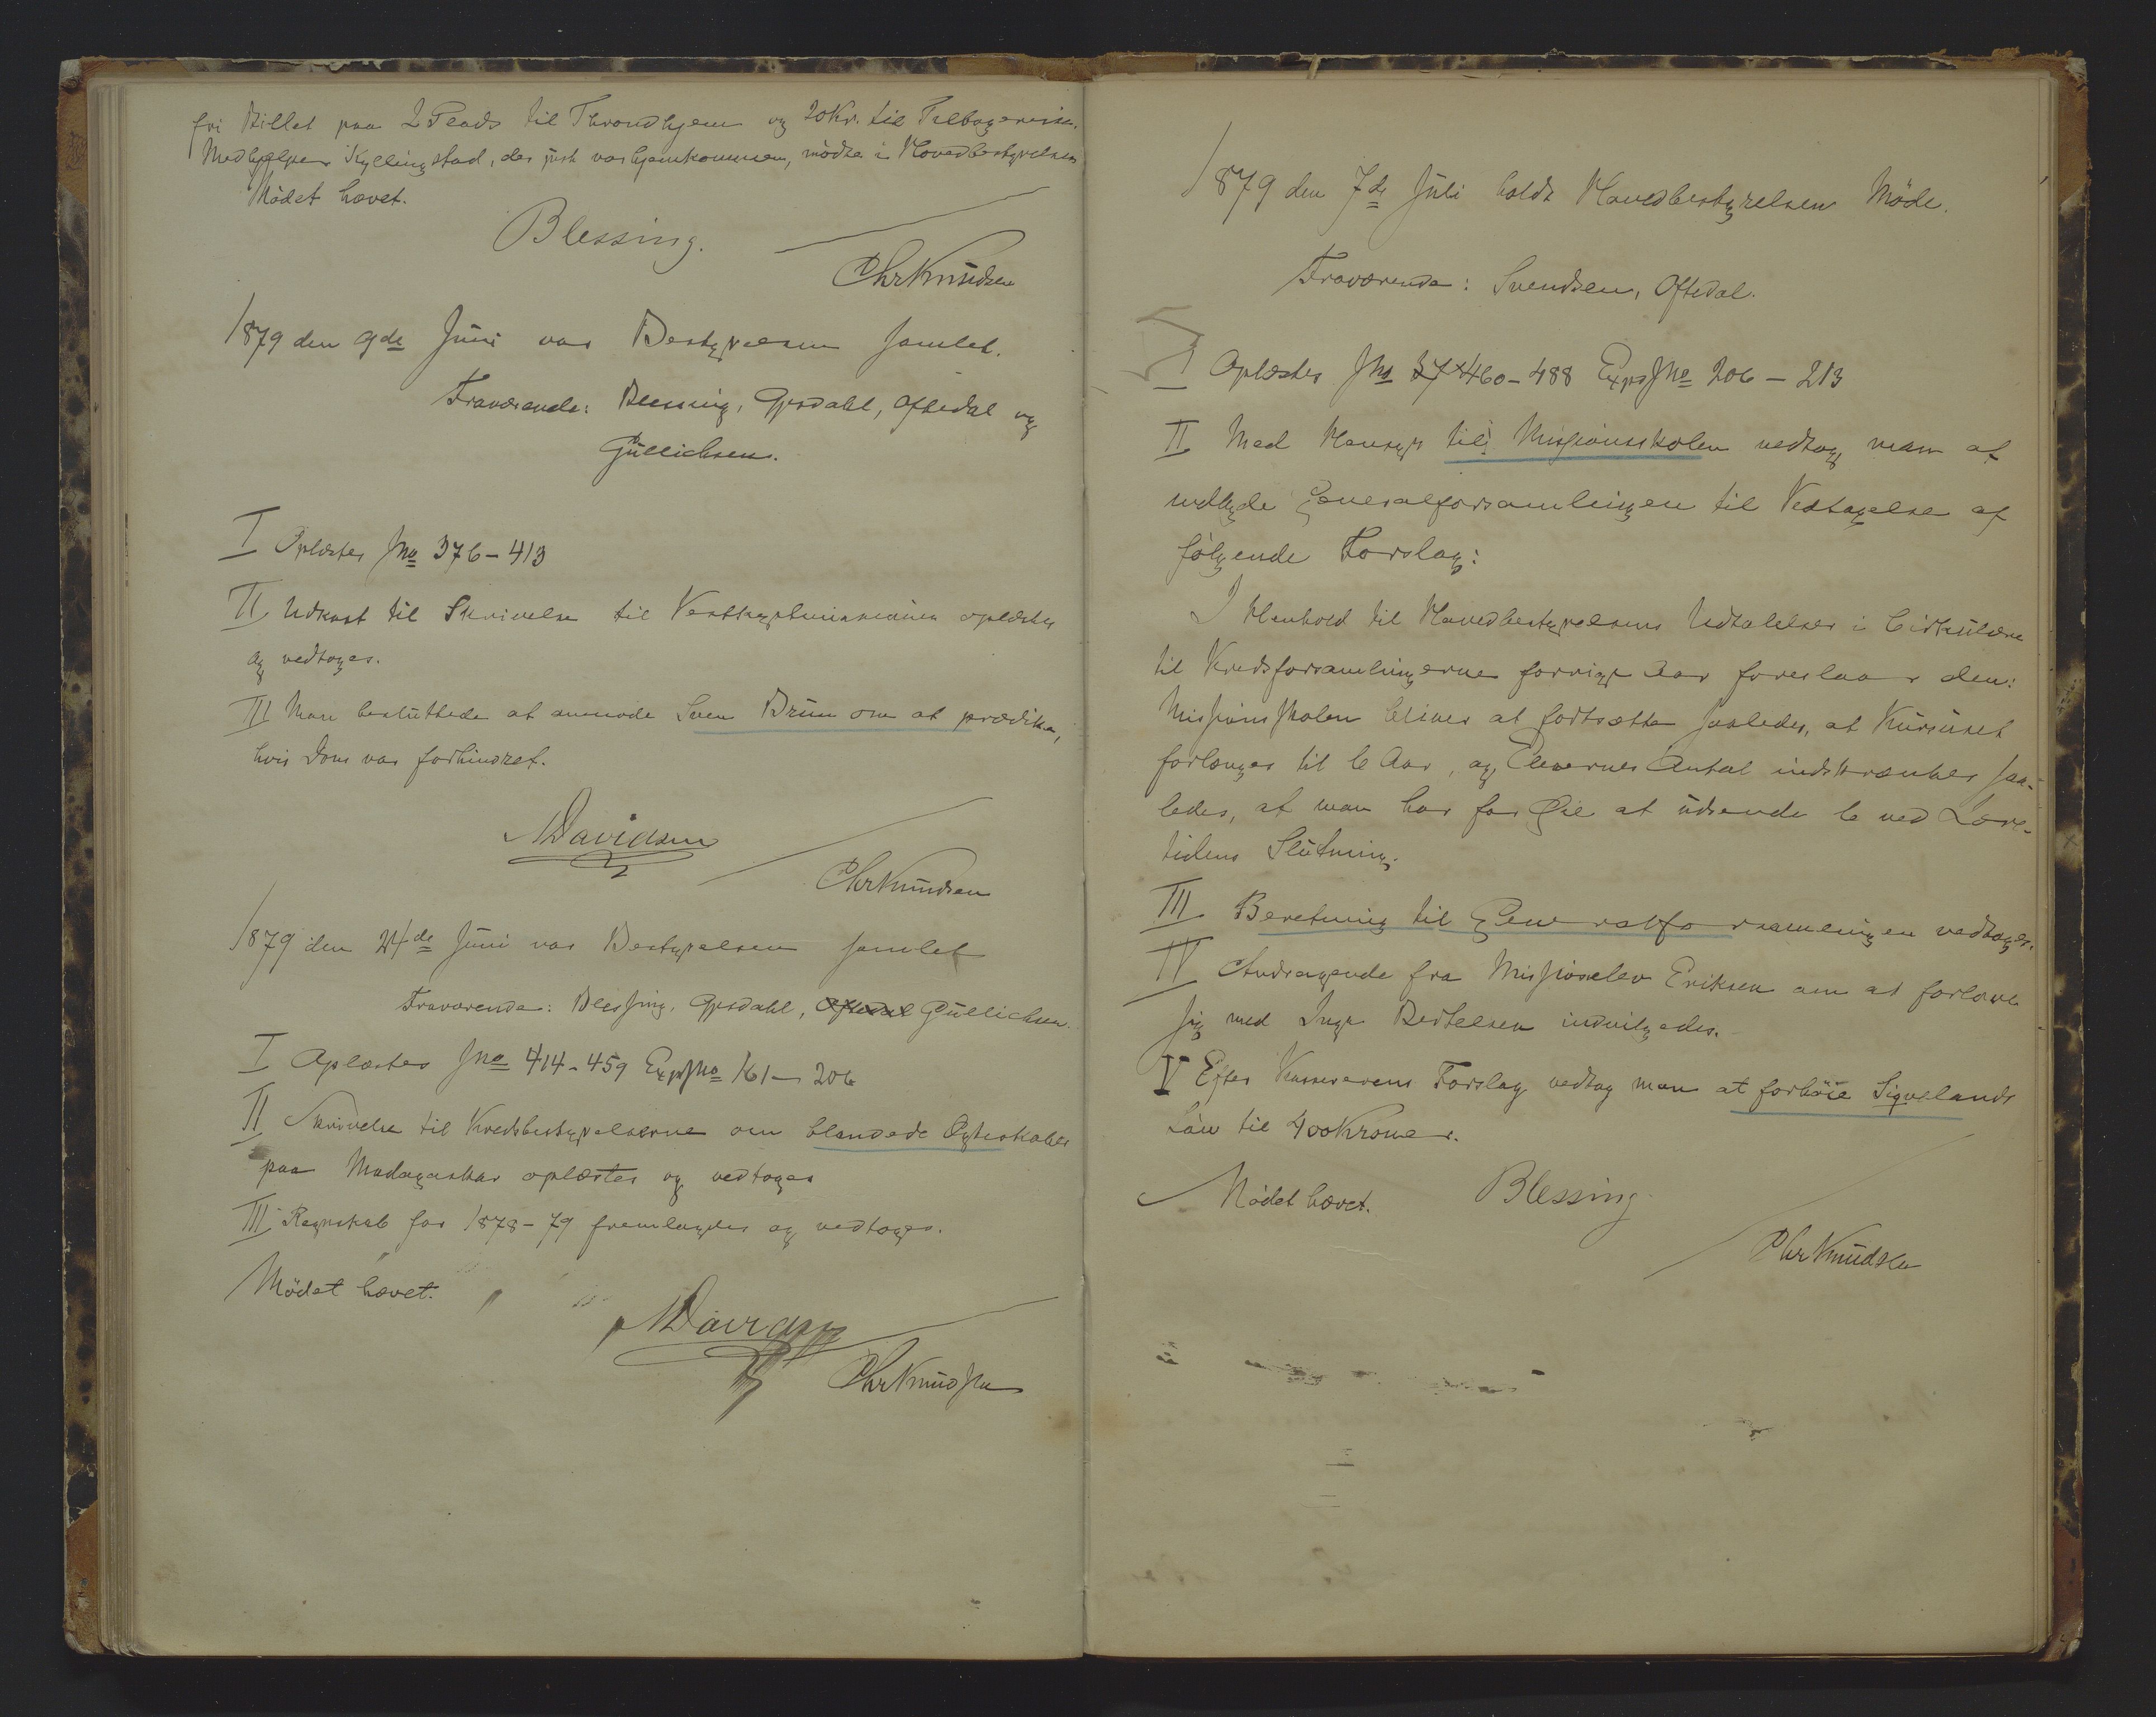 fri Billet paa 2 Plads til Throndhjem og 20 Kr. til Tilbagereise.
Medhjælper Kyllingstad, der just var hjemkommen, mødte i Hovedbestyrelsen
Mødet hævet.
Blessing.
Chr Knudsen
1879 den 9de Juni var Bestyrelsen samlet.
Fraværende: Blessing, Gjesdahl, Oftedal og
Gullichsen.
I Oplæstes Jno 376-413
II Udkast til Skrivelse til Vestkystmissionen oplæstes
og vedtoges.
III Man besluttede at anmode Sven Brun om at prædike,
hvis Dons var forhindret.
MDavidsen
Chr Knudsen
1879 den 24de Juni var Bestyrelsen samlet
Fraværende: Blessing, Gjesdahl, Oftedal Gullichsen.
I Oplæstes Jno 414-459 ExpJno 161-206
II Skrivelse til Kredsbestyrelserne om blandede Ægteskaber
paa Madagaskar oplæstes og vedtoges
III Regnskab for 1878-79 fremlagdes og vedtoges.
Mødet hævet.
MDavidsen
Chr Knudsen
1879 den 7de Juli holdt Hovedbestyrelsen Møde.
Fraværende: Svendsen, Oftedal.
I Oplæstes Jno 460-488 ExpJno 206-213
II Med Hensyn til Missionsskolen vedtog man at
indbyde Generalforsamlingen til Vedtagelse af
følgende Forslag:
I Henhold til Hovedbestyrelsens Udtalelser i Cirkulære
til Kredsforsamlingerne forrige Aar foreslaar den:
Missionsskolen bliver at fortsætte saaledes, at Kursuset
forlænges til 6 Aar, og Elevernes Antal indskrænkes saa-
ledes, at man har for Øie at udsende 6 ved Lære-
tidens Slutning.
III Beretning til Generalforsamlingen vedtoges.
IV Andragende fra Missionselev Eriksen om at forlove
sig med Inga Bertelsen indvilgedes.
V Efter Kassererens Forslag vedtog man at forhøie Sigvelands
Løn til 400 Kroner.
Mødet hævet.
Blessing
Chr Knudsen